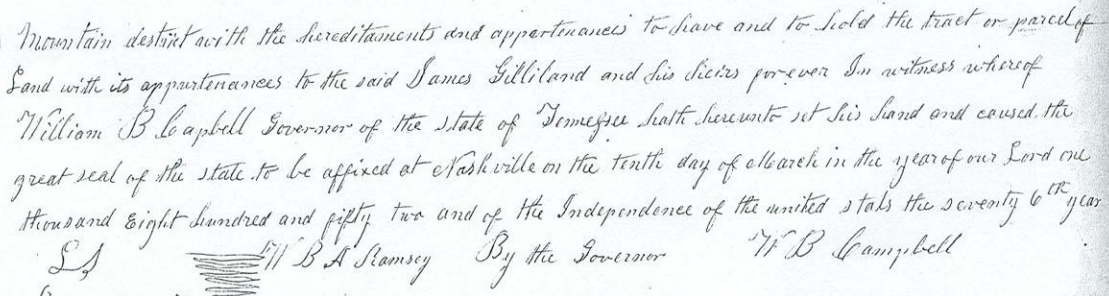 Mountain destrict with the hereditaments and appertenances to have and to hold the tract or parcel of
Land with its appurtenances to the said James Gilliland and his heirs forever In witness whereof
William B Capbell Governor of the state of Tennessee hath hereunto set his hand and caused the
great seal of the state to be affixed at Nashville on the tenth day of March in the year of our Lord one
thousand Eight hundred and fifty two and of the Independence of the united stats the seventy 6th year
LS W B A Ramsey By the Governor W B Campbell